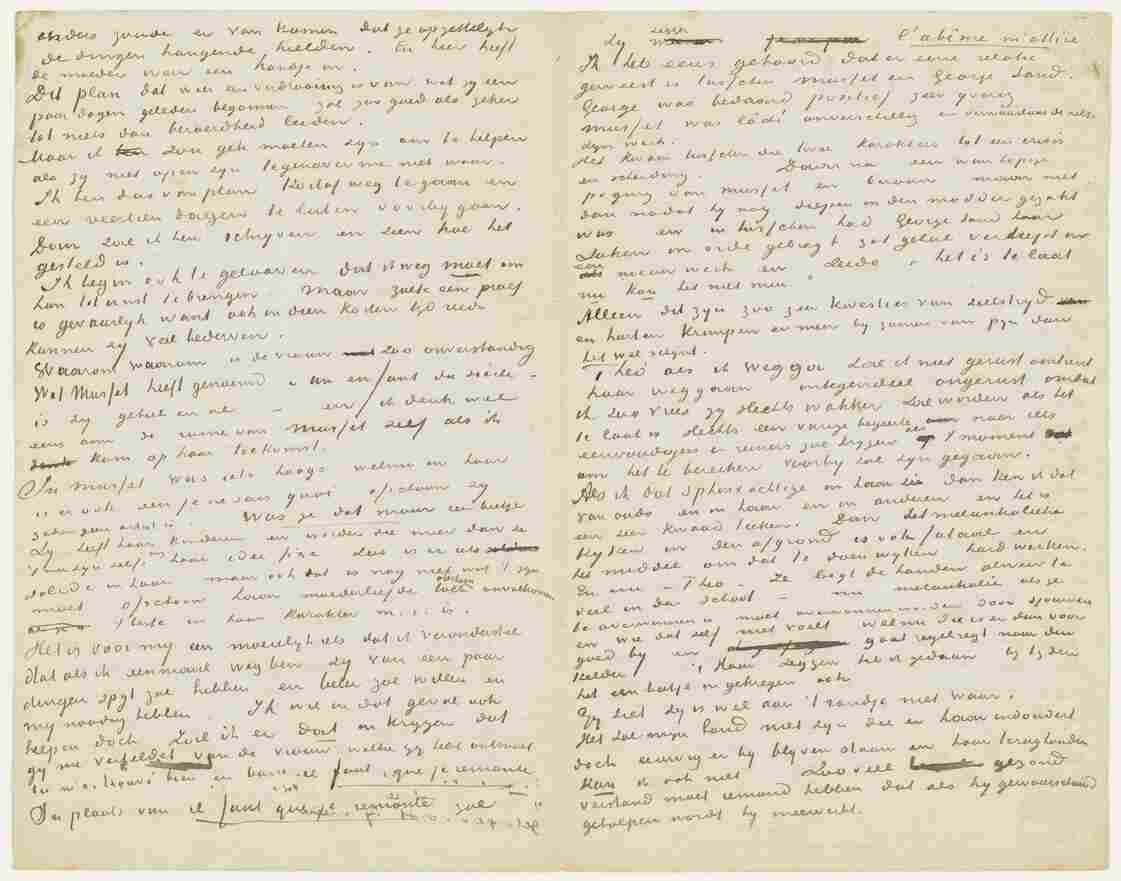 anders zoude er van komen dat ge opzettelijk
de dingen hangende hielden. En hier heeft
de moeder weer een handje in.
Dit plan dat weer een verdwazing is van wat zij een
paar dagen geleden begonnen zal zoo goed als zeker
tot niets dan beroerdheid leiden.
Maar ik zou gek moeten zijn om te helpen
als zij niet open zijn tegenover me niet waar.
Ik ben dus van plan kortaf weg te gaan en
een veertien dagen te laten voorbij gaan.
Dan zal ik hen schrijven en zien hoe het
gesteld is.
Ik begin ook te gelooven dat ik weg moet om
hen tot ernst te brengen. Maar zulk een proef
is gevaarlijk want ook in dien korten tijd reeds
kunnen zij veel bederven.
Waarom waarom is de vrouw zoo onverstandig
Wat Musset heeft genoemd "un enfant du siècle"
is zij geheel en al – en ik denk wel
eens aan de ruine van Musset zelf als ik
kom op haar toekomst.
In Musset was iets hoogs welnu in haar
is er ook een je ne sais quoi ofschoon zij
zeker geen artist is. Was ze dat maar een beetje
Zij heeft haar kinderen en worden die meer dan in
't van zijn zelf nog haar idée fixe zoo is er iets
solide in haar maar ook dat is nog niet wat 't zijn
moet ofschoon haar moederliefde ofschoon onvolkomen
't beste in haar karakter m.i. is.
Het is voor mij en moeielijk als dat ik veronderstel
dat als ik eenmaal weg ben zij van een paar
dingen spijt zal hebben en beter zal willen en
mij noodig hebben. Ik wil in dat geval ook
helpen doch zal ik er dat in krijgen dat
gij me vertelt van de vrouw welke gij hebt ontmoet
tu m'as trouvé bien en bas il faut que je remonte.
In plaats van il faut que je remonte zal
zij zeggen l'abîme m'attire
Ik heb eens gehoord dat er eene relatie
geweest is tusschen Musset en George Sand.
George was bedaard positief zeer ijverig
Musset was lâche onverschillig en verwaarloosde zelfs
zijn werk.
Het kwam tusschen die twee karakters tot een crisis
en scheiding. Daarna een wanhopige
poging van Musset en berouw maar niet
dan nadat hij nog dieper in den modder gezakt
was en intusschen had George Sand haar
zaken in orde gebragt zat geheel verdiept in
een nieuw werk en zeide "het is te laat
nu kan het niet meer"
Alleen dit zijn zoo zeer kwesties van zielstrijd
en harten krimpen er meer bij zamen van pijn dan
het wel schijnt.
Theo als ik weg ga zal ik niet gerust omtrent
haar weg gaan integendeel ongerust omdat
ik zoo vrees zij slechts wakker zal worden als het
te laat is slechts een vurige begeerte naar iets
eenvoudigers en reiners zal krijgen als 't moment
om het te bereiken voorbij zal zijn gegaan.
Als ik dat sphinxachtige in haar zie dan ken ik dat
van ouds en in haar en in anderen en het is
een zeer kwaad teeken. Dan dat melancholische
kijken in den afgrond is ook fataal en
het middel om dat te doen wijken hard werken.
En nu – Theo – ze legt de handen al weer te
veel in de schoot – nu melankolie als ze
te overwinnen is moet overwonnen worden door sjouwen
en wie dat zelf niet voelt welnu die is er dan voor
goed bij en gaat regelregt naar den
kelder
't Haar zeggen heb ik gedaan bij tijden
het een beetje in gekregen ook
Gij ziet zij is wel aan 't randje niet waar.
Het zal mijn hand niet zijn die er haar induwt
doch eeuwig er bij blijven staan en haar terughouden
Kan ik ook niet. Zooveel gezond
verstand moet iemand hebben dat als hij gewaarschuwd
geholpen wordt hij meewerkt.